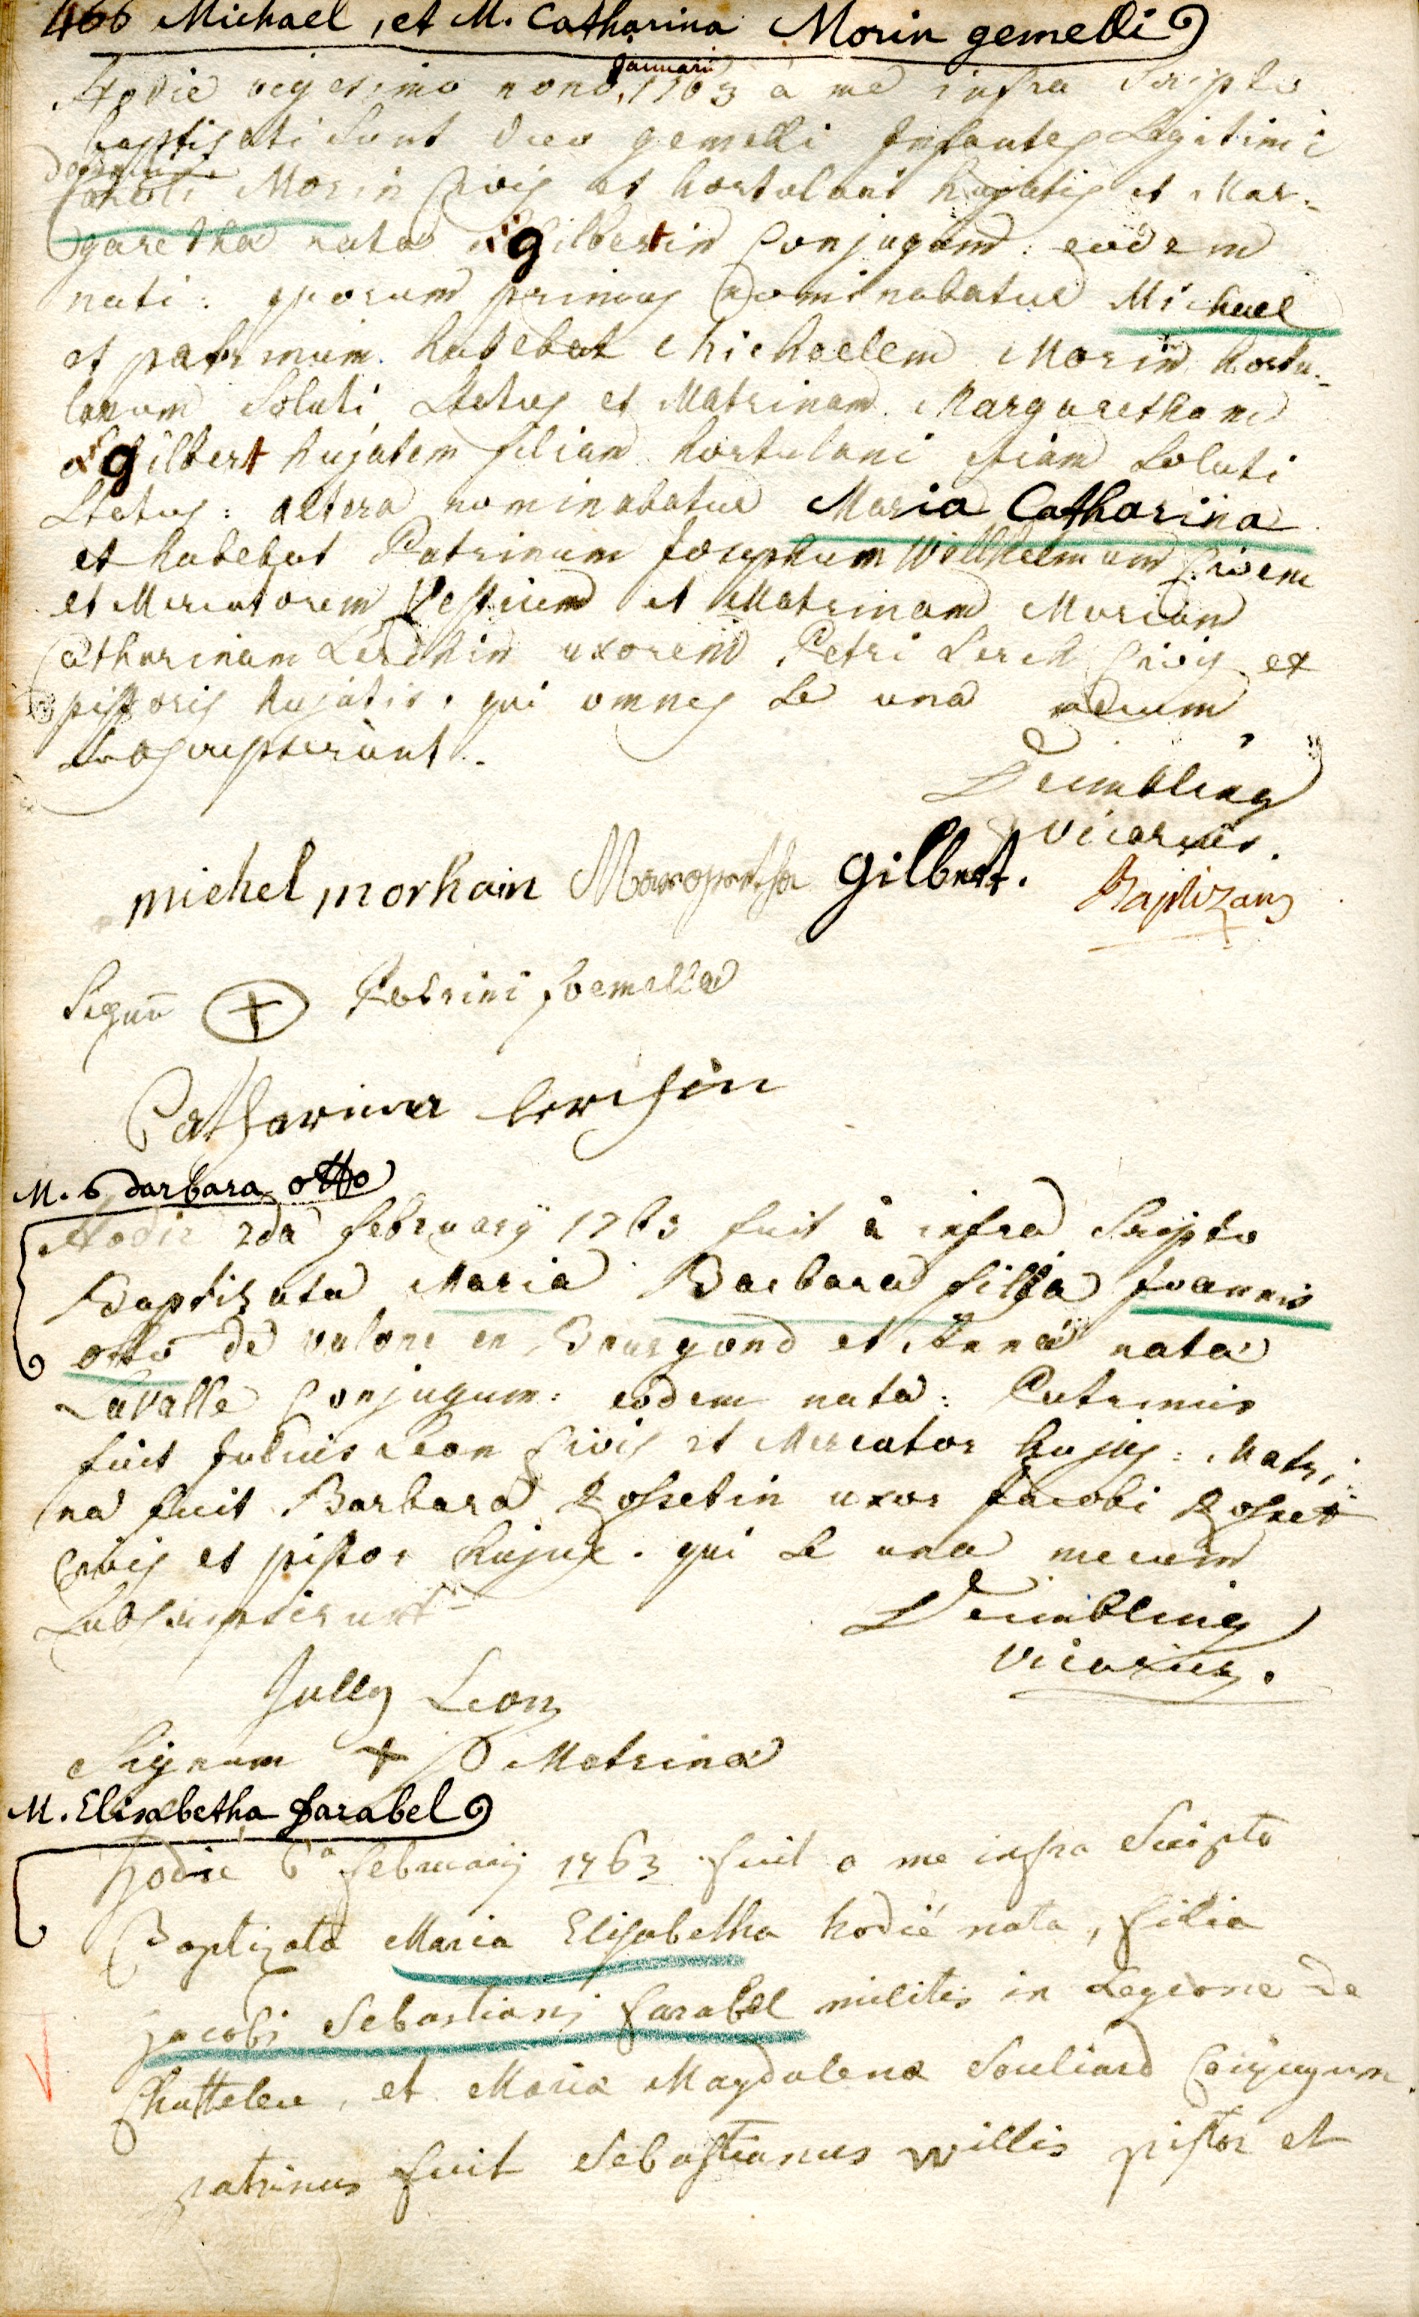 466 Michael, et M. Catharina Morin gemelli
Januarii
Hodie vigesimo nono 1763 a me infra scripto
baptisati sunt duo gemelli Infantes Legitimi
Caroli Morin Civis et hortulani hujatis et Mar-
garetha nata Gilbertin Conjugum: eodem
nati: quorum primus nominabatur Michael
et patrinum habebat Michaelem Morin hortu-
lanum Soluti Status et Matrinam Margaretham
Gilbert hujatem filiam hortulani etiam Soluti
Status: altera nominabatur Maria Catharina
et habebat Patrinum Josephum Willhelmum Civem
et Mercatorem et Matrinam Mariam
Catharinam Lerchin uxorem Petri Lerch Civis et
pistoris hujatis. qui omnes se una mecum
subscripserunt.
Deimbling
vicarius.
Baptizans
michel morhain Margretha gilbert.
Signū + Patrini foemella
Catharina Lerchin
M. Barbara otto
Hodie 2da February 1763 fuit à infra scripto
Baptizata Maria Barbara filia Joannis
otto de en Bourgond et Anna nata
Lavalle Conjugum: eodem nata: Patrinus
fuit Julius Leon Civis et Mercator hujus: Matri-
na fuit Barbara Rosretin uxor Jacobi Rosret
Civis et pistor hujus. qui se una mecum
Subscripserunt
Deimbling
vicarius.
Jully Leon
Signum + Matrina
M. Elisabetha farabel
hodie 6a february 1763 fuit a me infra Scripto
Baptizata Maria Elisabetha hodié nata, filia
Jacobi Sebastiani farabel militis in Legione de
Chattelen, et Maria Magdalena Souliard Conjugum.
patrinus fuit Sebastianus willis pistor et